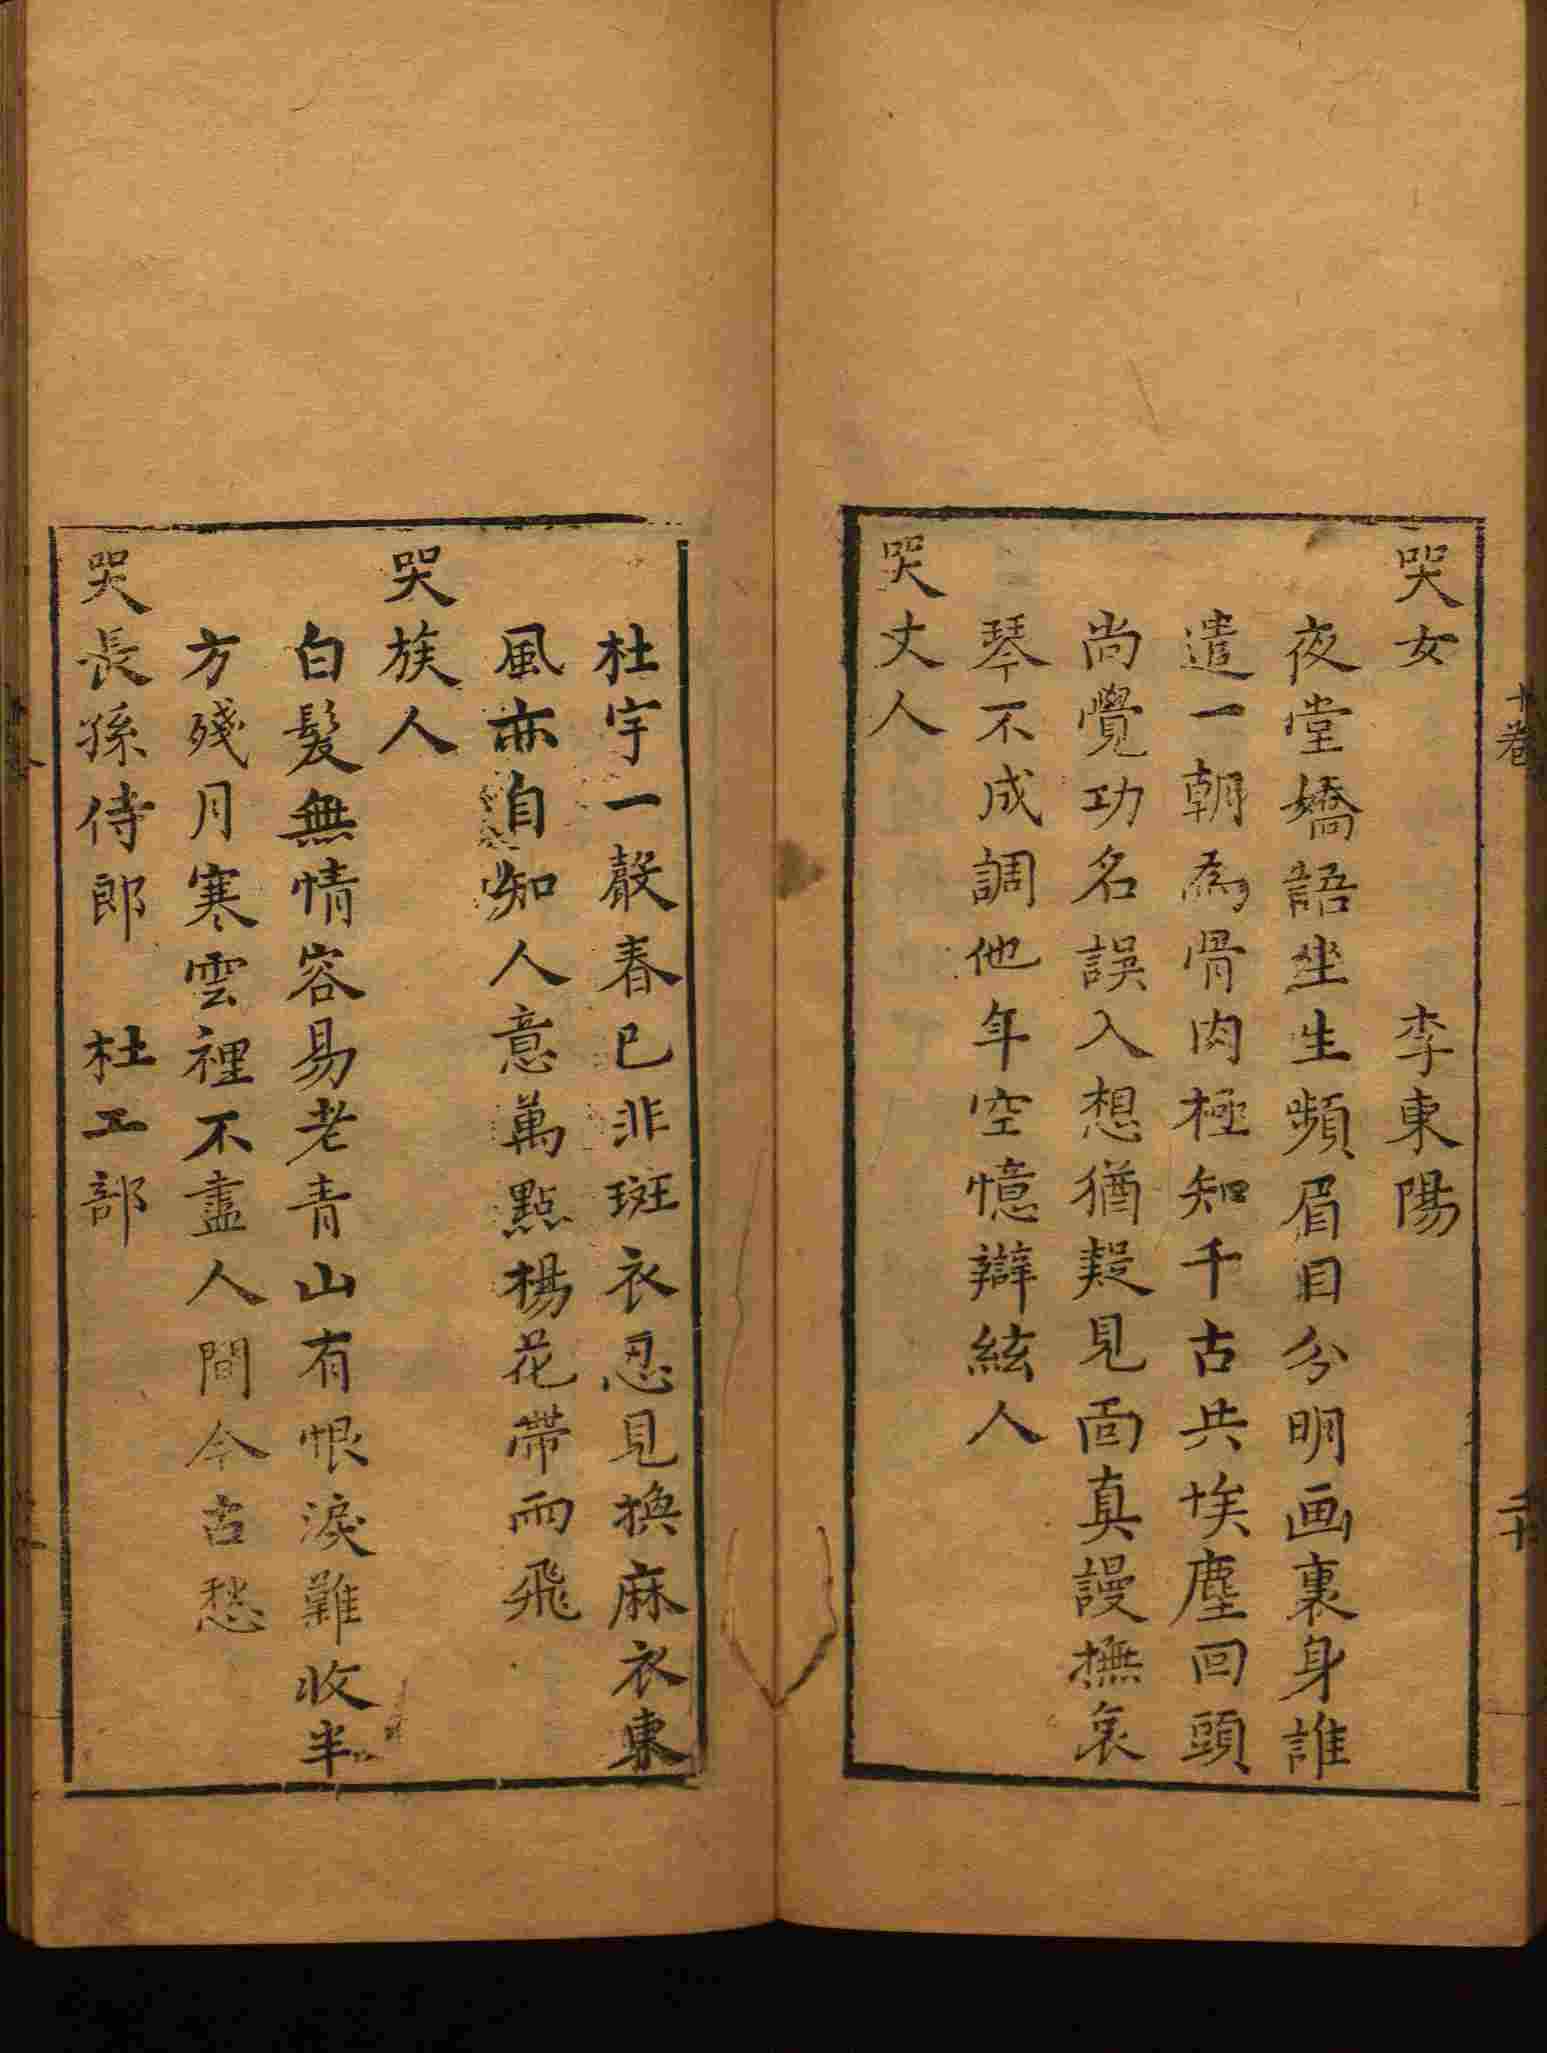 十卷　二十
哭女　李東陽
夜堂嬌語坐生嚬眉目分明画裏身誰
遣一朝為骨肉極知千古共埃塵回頭
尚覺功名誤入想猶疑見面真謾撫哀
琴不成調他年空憶辯絃人
哭丈人
杜宇一聲春已非斑衣忍見換麻衣東
風亦自知人意萬點楊花帶雨飛
哭族人
白髮無情容易老青山有恨淚難收半
方殘月寒雲裡不盡人間今古愁
哭長孫侍郎　杜工部